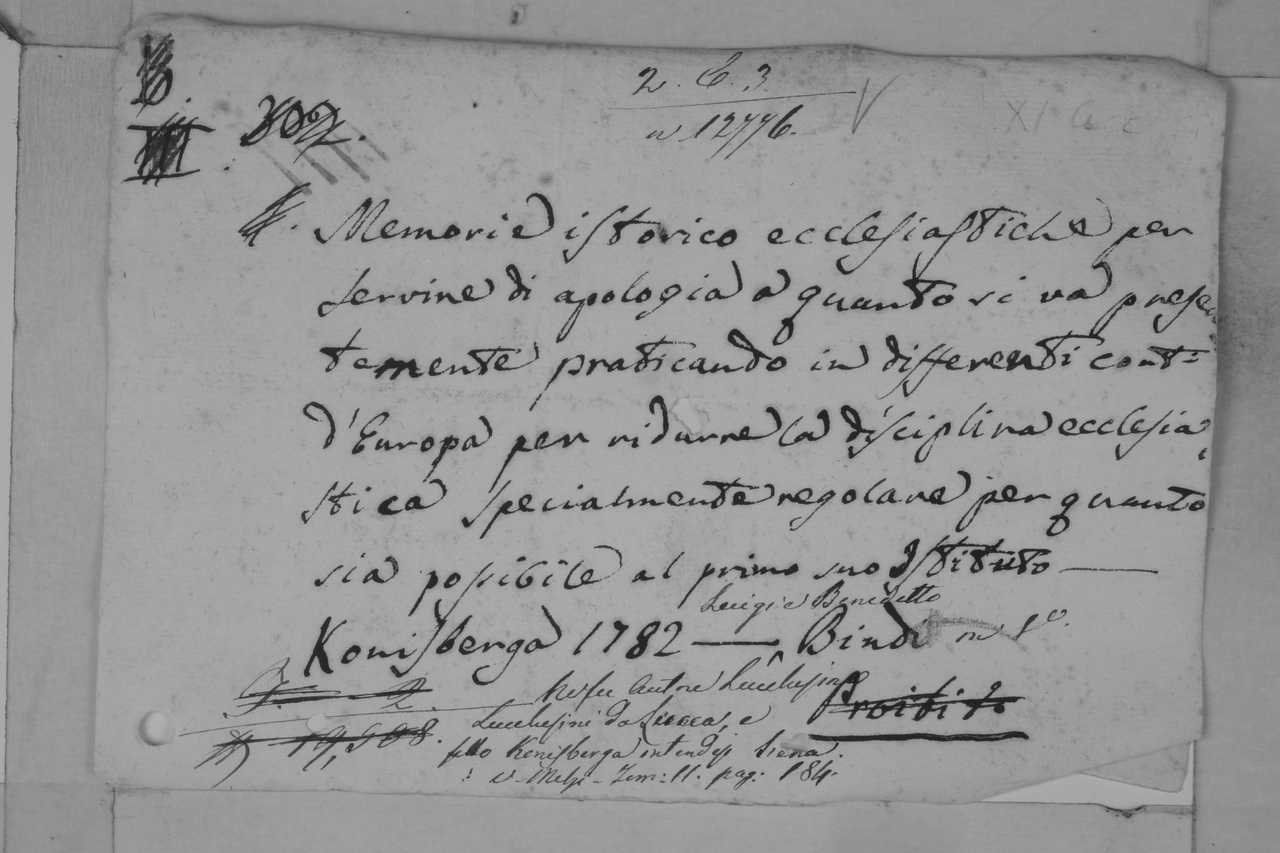 2. C. 3
n 12776.
XI
302.
Memorie istorico ecclesiastiche per
servire di apologia a quanto si va presen
temente praticando in differenti conti
d'Europa per ridurre la disciplina ecclesia
stica specialmente regolare per quanto
sia posibile al primo suo Istituto —
Luigi e Benedetto
Konisberga 1782 — Bindi in 8o.
2.
19,508.
autore Lucchesini
Lucchesini da Lucca, e
sotto Konisberga intendesi Siena.
v. Melzi - Tom: 11. pag: 184.
Proibito